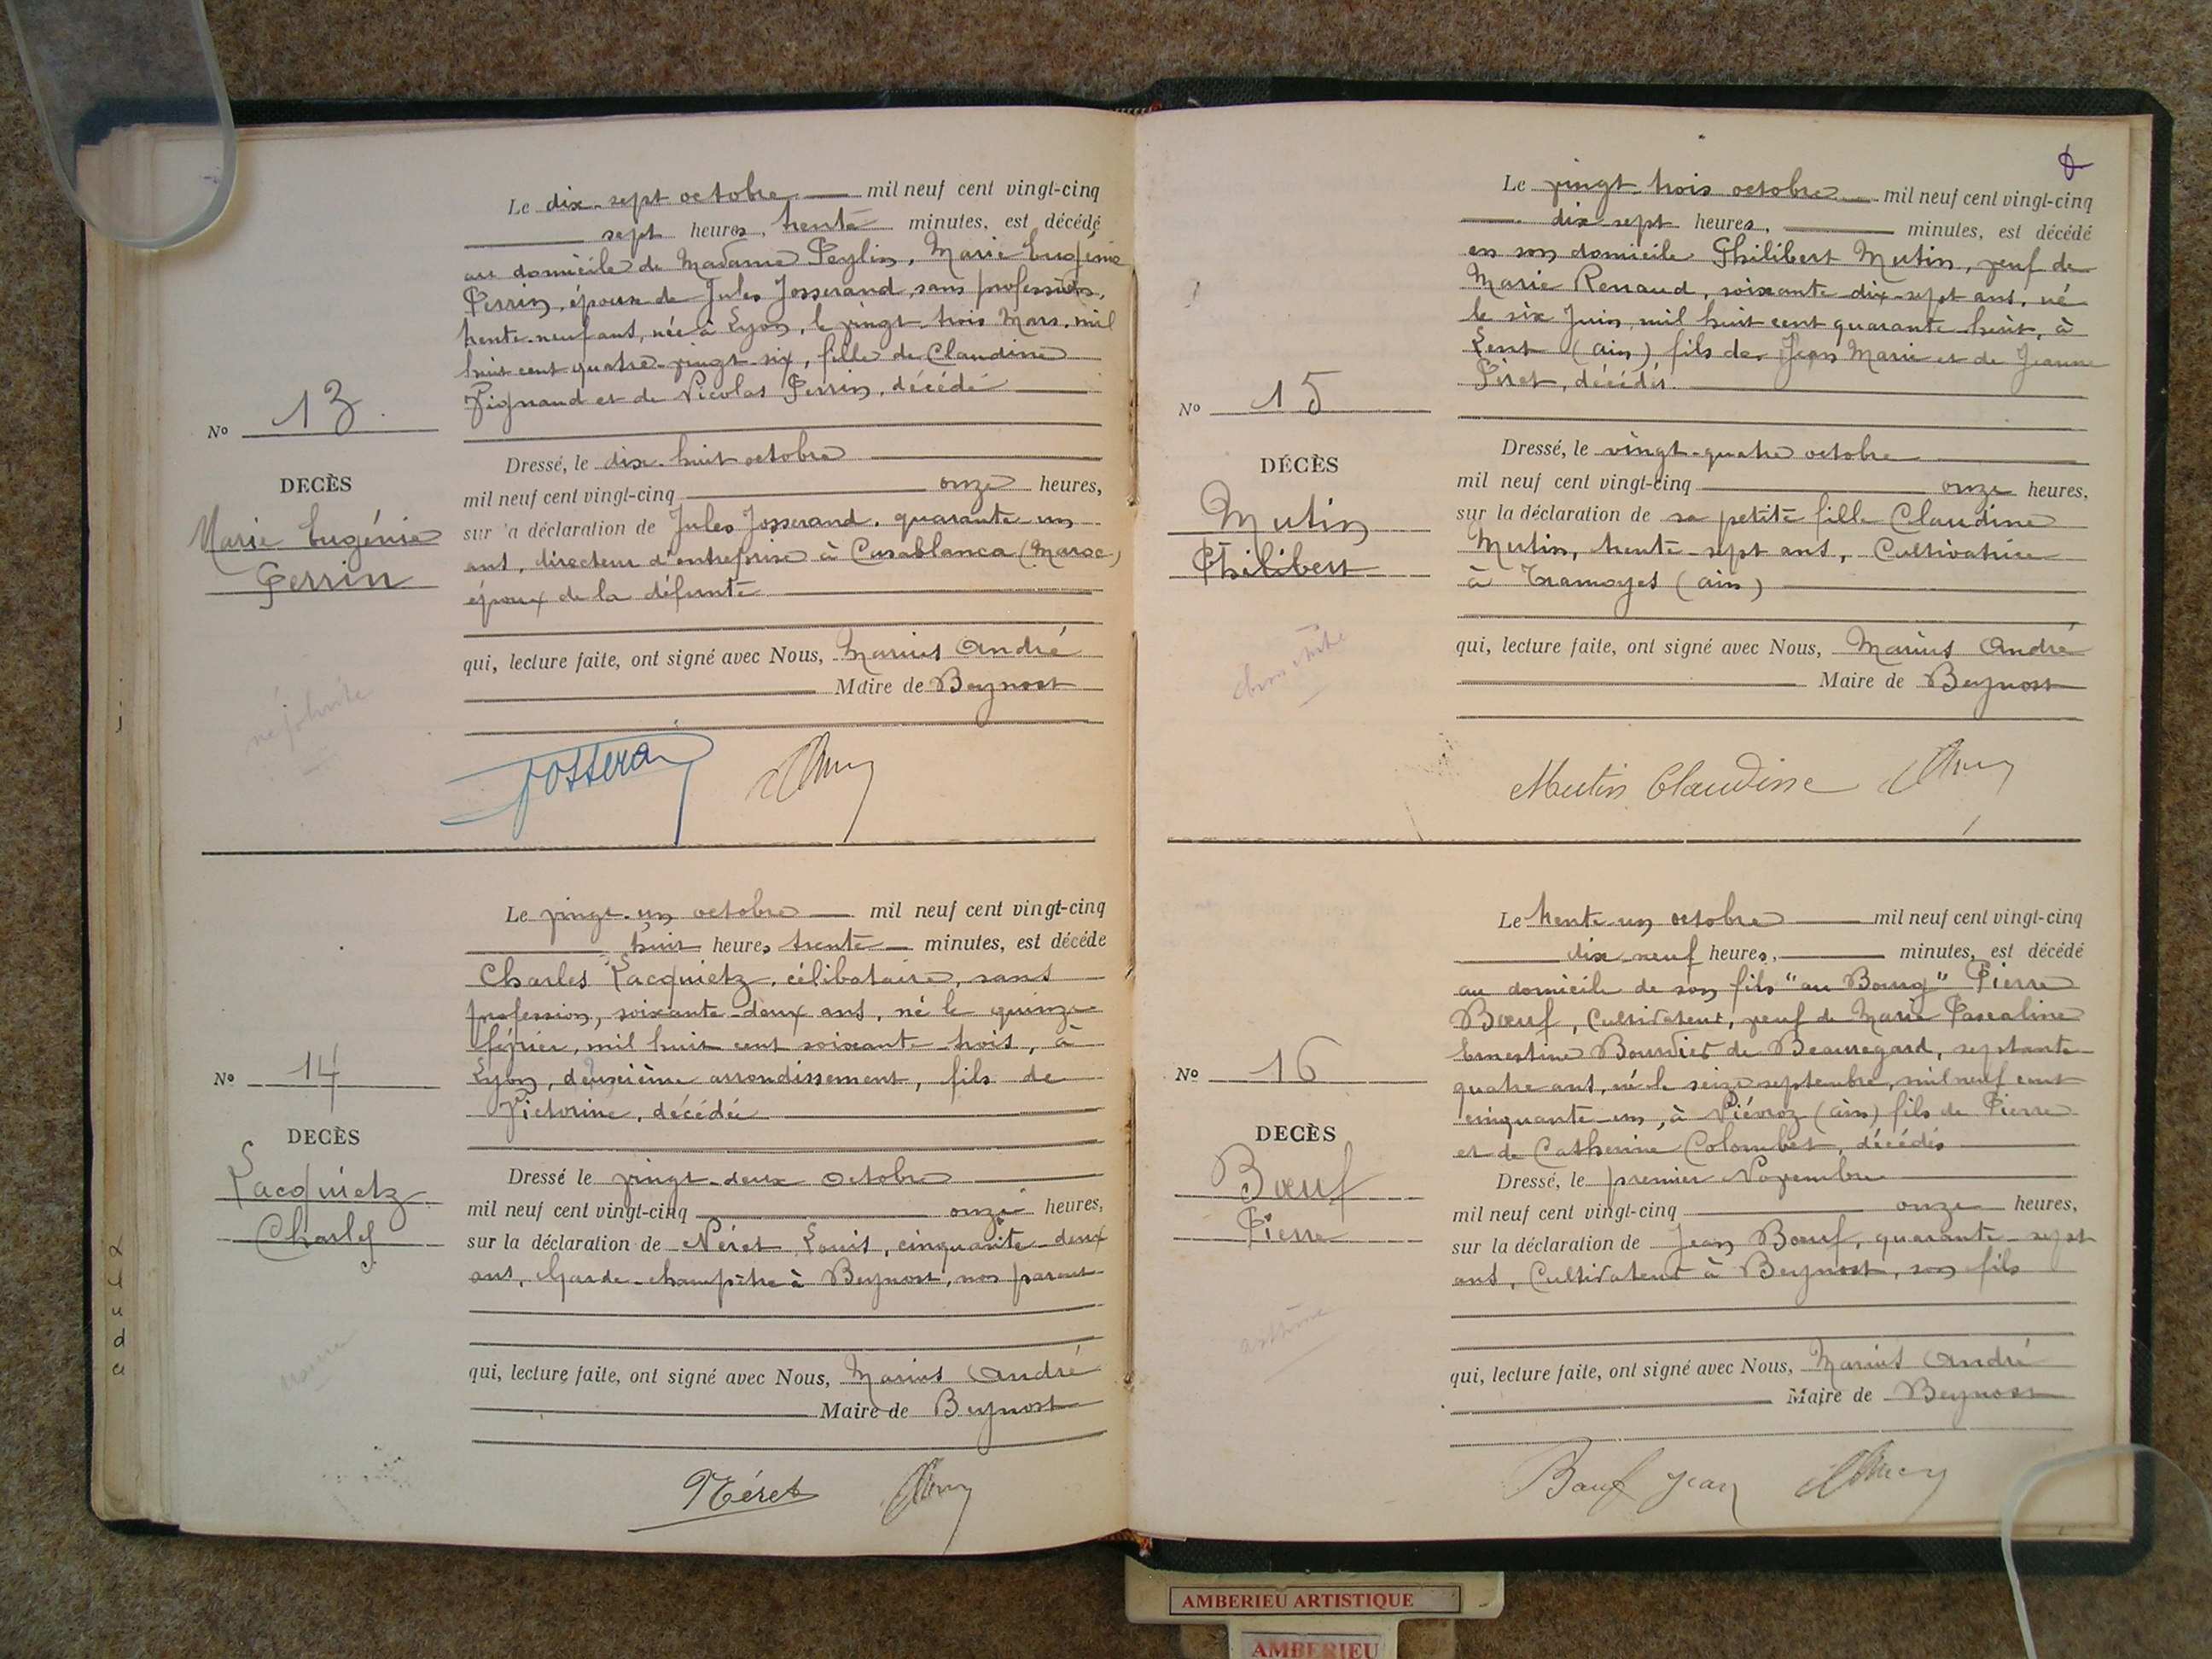 Le dix-sept octobre mil neuf cent vingt-cinq
sept heures, trente minutes, est décédé
au domicile de Madame Peylin, Marie Eugénie
Perrin, épouse de Jules Josserand, sans profession,
trente-neuf ans, née à Lyon, le vingt-trois Mars, mil
huit cent quatre-vingt-six, fille de Claudine
Vignaud et de Nicolas Perrin, décédé
No 13.
DECÈS
Marie Eugénie
Perrin
Dressé, le dix-huit octobre
mil neuf cent vingt-cinq onze heures,
sur a déclaration de Jules Josserand, quarante un
ans, directeur d'entreprise à Casablanca (Maroc)
époux de la défunte
qui, lecture faite, ont signé avec Nous, Marius André
Maire de Beynost
néphrite
Josserand
Le vingt-un octobre mil neuf cent vingt-cinq
huit heures trente minutes, est décédé
Charles Lacquietz, célibataire, sans
profession, soixante-deux ans, né le quinze
février, mil huit cent soixante-trois, à
Lyon, deuxième arrondissement, fils de
Victorine, décédée
No 14
DECÈS
Lacquietz
Charles
Dressé le vingt-deux Octobre
mil neuf cent vingt-cinq onze heures,
sur la déclaration de Néret Louis, cinquante-deux
ans, Garde-champêtre à Beynost, non parent
qui, lecture faite, ont signé avec Nous, Marius André
Maire de Beynost
Néret
Le vingt-trois octobre mil neuf cent vingt-cinq
dix-sept heures, minutes, est décédé
en son domicile Philibert Mutin, veuf de
Marie Renaud, soixante-dix-sept ans, né
le six Juin, mil huit cent quarante-huit, à
Lent (Ain) fils de Jean Marie et de Jeanne
Péret, décédés.
No 15
DÉCÈS
Mutin
Philibert
Dressé, le vingt-quatre octobre
mil neuf cent vingt-cinq onze heures,
sur la déclaration de sa petite fille Claudine
Mutin, trente-sept ans, Cultivatrice
à Tramoyes (Ain)
qui, lecture faite, ont signé avec Nous, Marius André
Maire de Beynost
Mutin Claudine
Le trente-un octobre mil neuf cent vingt-cinq
dix-neuf heures, minutes, est décédé
au domicile de son fils "au Bourg" Pierre
Bœuf, Cultivateur, veuf de Marie Pascaline
Ernestine Bouvier de Beauregard, septante-
quatre ans, né le seize septembre, mil neuf cent
cinquante-un, à Niévroz (Ain) fils de Pierre
et de Catherine Colombet, décédés
No 16
DECÈS
Bœuf
Pierre
Dressé, le premier Novembre
mil neuf cent vingt-cinq onze heures,
sur la déclaration de Jean Bœuf, quarante-sept
ans, Cultivateur à Beynost, son fils
asthme
qui, lecture faite, ont signé avec Nous, Marius André
Maire de Beynost
Bœuf Jean
AMBERIEU ARTISTIQUE
AMBERIEU